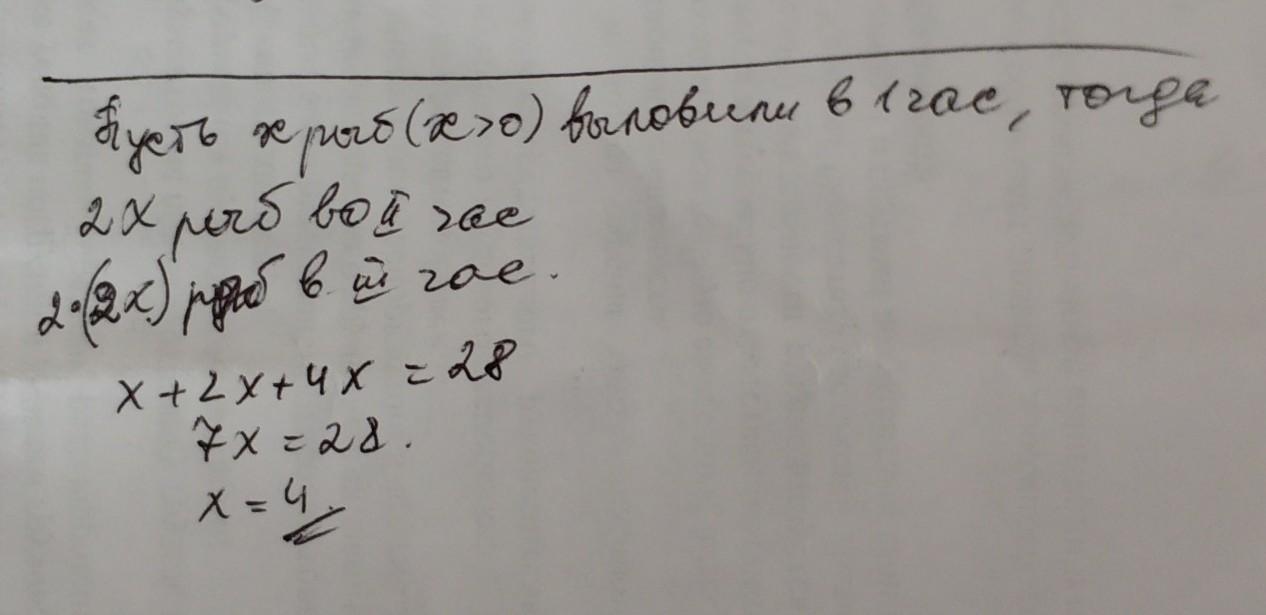 Пусть x рыб (x>0) выловили в 1 час, тогда
2x рыб во II час
2·(2x) рыб в III час.
x+2x+4x = 28
7x = 28.
x = 4.